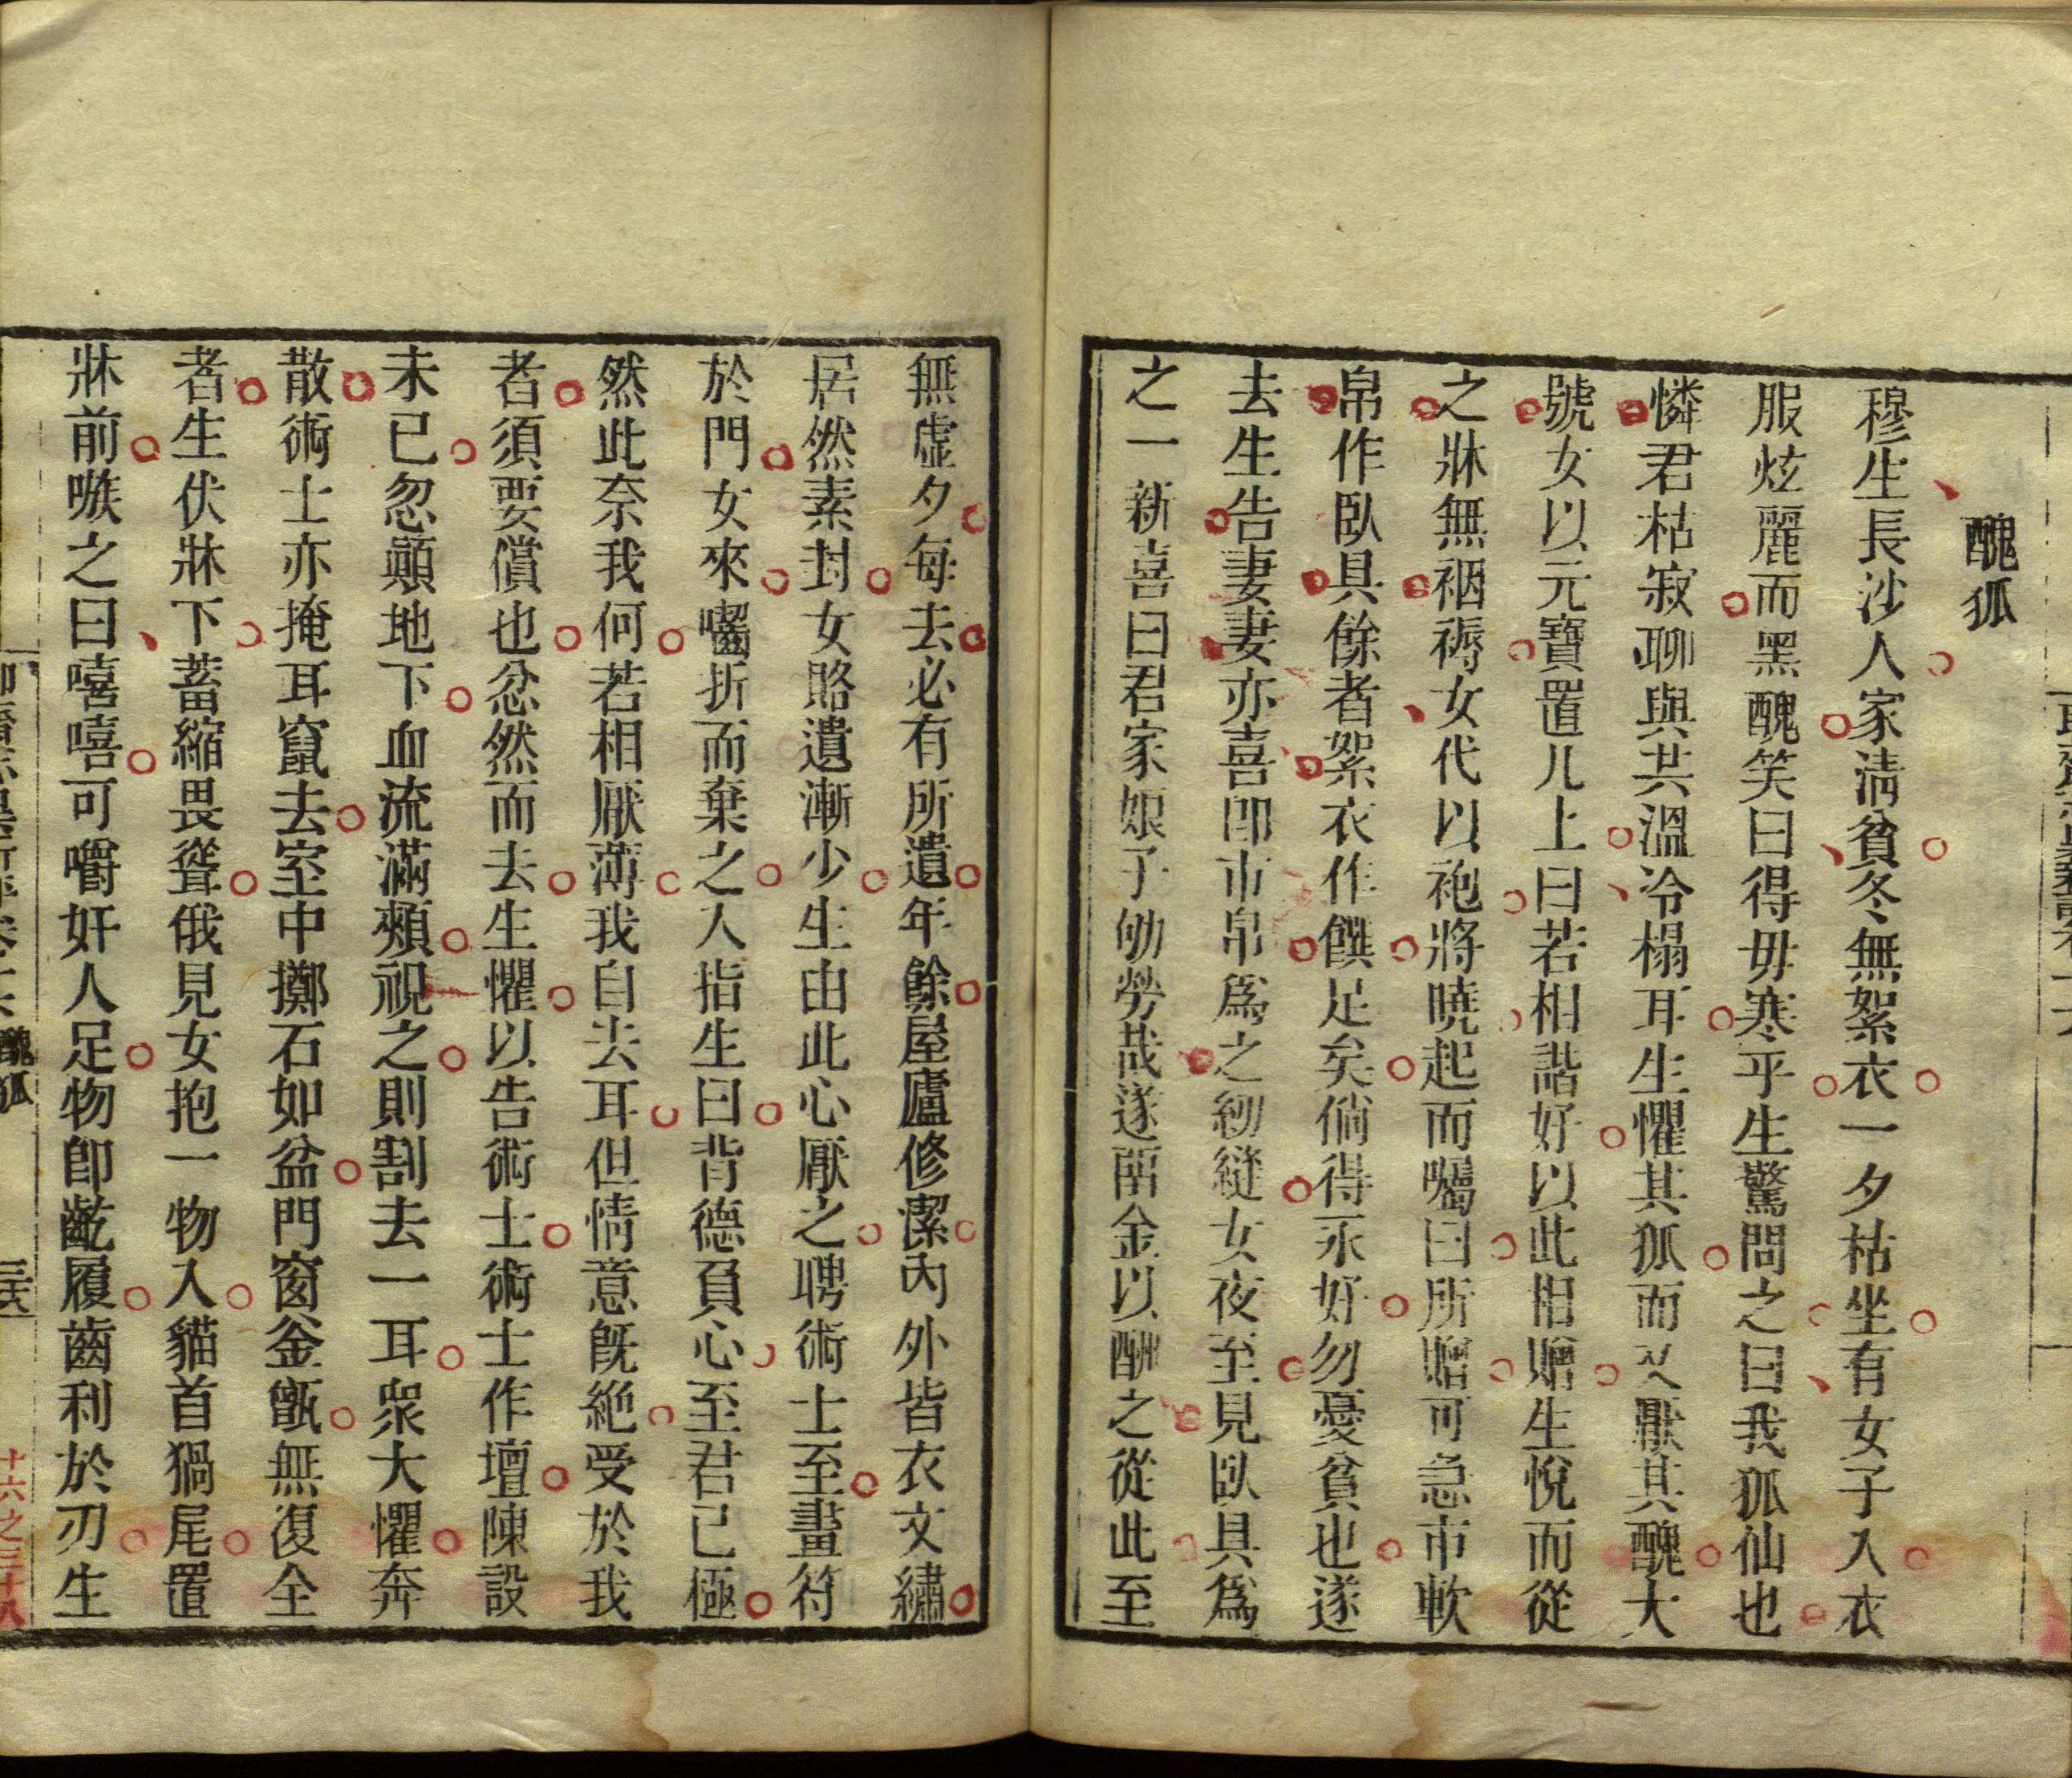 醜狐
穆生長沙人家淸貧冬無絮衣一夕枯坐有女子入衣
服炫麗而黑醜笑曰得毋寒乎生驚問之曰我狐仙也
憐君枯寂聊與共溫冷榻耳生懼其狐而又厭其醜大
號女以元寶置几上曰若相諧好以此相贈生悅而從
之牀無裀褥女代以袍將曉起而囑曰所贈可急市軟
帛作臥具餘者絮衣作饌足矣倘得永好勿憂貧也遂
去生告妻妻亦喜卽市帛爲之紉縫女夜至見臥具爲
之一新喜曰君家娘子劬勞哉遂留金以酬之從此至
無虛夕每去必有所遺年餘屋廬修潔內外皆衣文繡
居然素封女賂遺漸少生由此心厭之聘術士至畫符
於門女來嚙折而棄之入指生曰背德負心至君已極
然此奈我何若相厭薄我自去耳但情意旣絶受於我
者須要償也忿然而去生懼以告術士術士作壇陳設
未已忽顚地下血流滿頰視之則割去一耳衆大懼奔
散術士亦掩耳竄去室中擲石如盆門窗釜甑無復全
者生伏牀下蓄縮畏聳俄見女抱一物入貓首猧尾置
牀前嗾之曰嘻嘻可嚼奸人足物卽齕履齒利於刃生
醜狐
十六之三十八